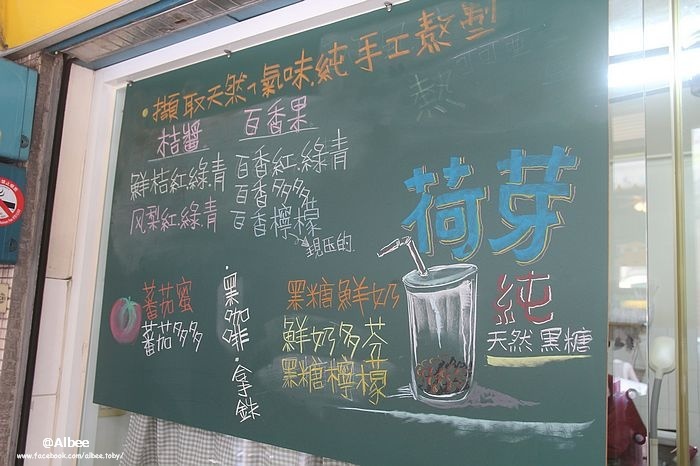 ・擷取天然、氣味.純手工熬製
桔醬
鮮桔紅.綠.青
风梨紅.綠青
百香果
百香紅.綠青
百香多多
百香檸檬
現压的.
荷芽
純
天然黑糖
蕃茄蜜
蕃茄多多
・黑咖啡
・拿鉄
黑糖鮮奶
鮮奶多芬
黑糖檸檬
@Albee
www.facebook.com/albee.toby/